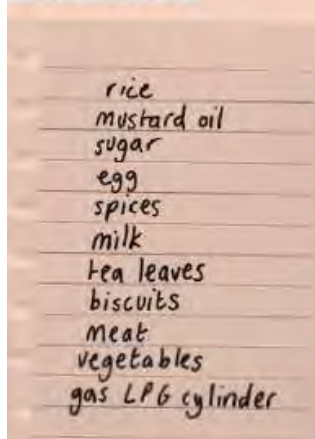 rice
mustard oil
sugar
egg
spices
milk
tea leaves
biscuits
meat
vegetables
gas LPG cylinder